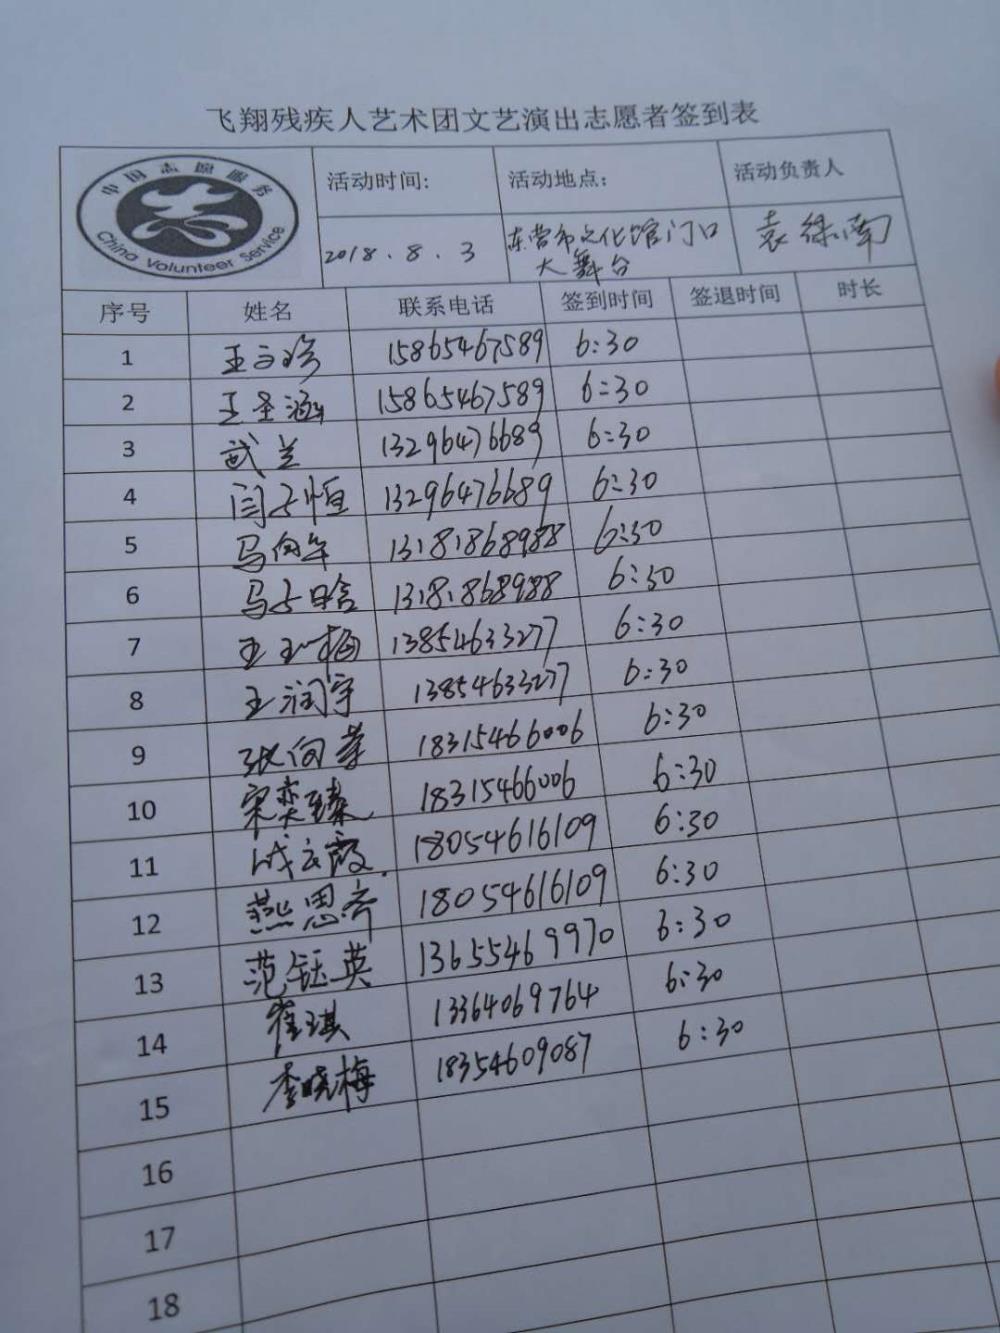 飞翔残疾人艺术团文艺演出志愿者签到表
中国志愿服务
China Volunteer Service
活动时间: 活动地点: 活动负责人
2018.8.3 东营市文化馆门口 袁绿南
大舞台
序号 姓名 联系电话 签到时间 签退时间 时长
1 王文珍 15865467589 6:30
2 王圣涵 15865467589 6:30
3 武兰 13296476689 6:30
4 闫子恒 13296476689 6:30
5 马向华 13181868988 6:30
6 马子晗 13181868988 6:30
7 王玉梅 13854633277 6:30
8 王润宇 13854633277 6:30
9 张向 18315466006 6:30
10 宋奕臻 18315466006 6:30
11 霞 18054616109 6:30
12 燕思齐 18054616109 6:30
13 范钰英 13655469970 6:30
14 崔琪 13364069764 6:30
15 李晓梅 18354609087 6:30
16
17
18